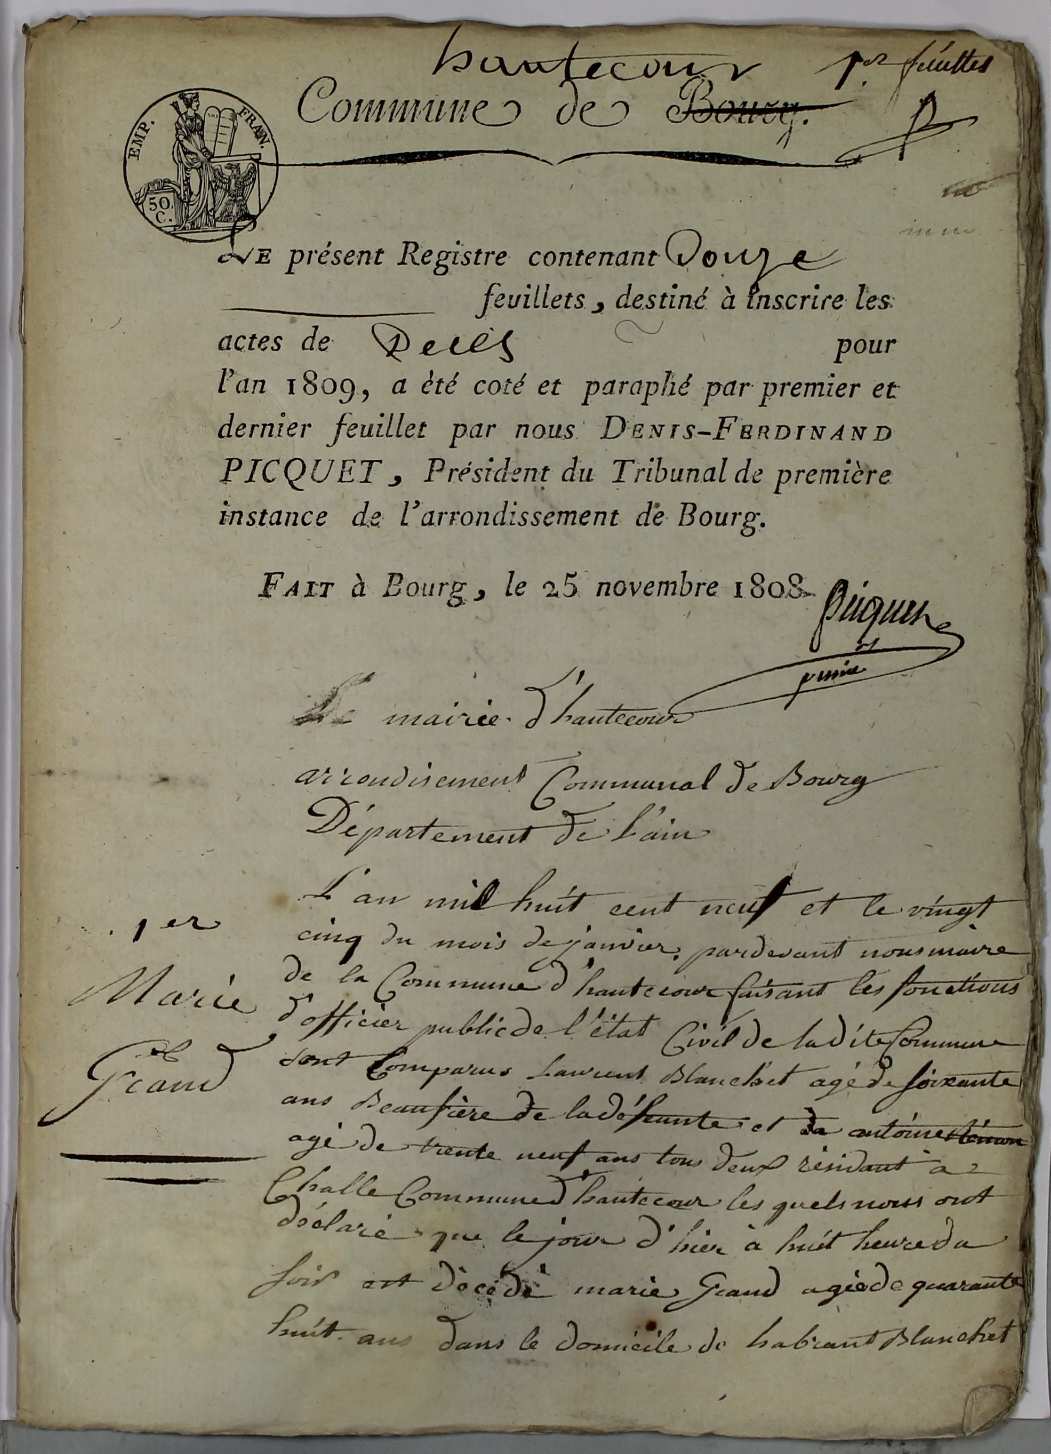 hautecour 1er feuillet
Commune de Bourg.
EMP. FRAN.
50.
C.
LE présent Registre contenant Douze
feuillets, destiné à inscrire les
actes de Décés pour
l'an 1809, a été coté et paraphé par premier et
dernier feuillet par nous DENIS-FERDINAND
PICQUET, Président du Tribunal de première
instance de l'arrondissement de Bourg.
FAIT à Bourg, le 25 novembre 1808.
Picquet
De mairie d'hautecour
arrondisement Communal de Bourg
Département de l'ain
1er
Marie
Grand
L'an mil huit cent neuf et le vingt
cinq du mois de janvier, pardevant nous maire
de la Commune d'hautecour faisant les fonctions
d'officier public de l'état Civil de ladite Commune
sont Comparus Laurent Blanchet agé de soixante
ans Beaufrère de la défunte et antoine
agé de trente neuf ans tous deux résidant a
Challe Commune d'hautecour les quels nous ont
déclaré que le jour d'hier à huit heure du
soir est décédé marie Grand agée de quarante
huit ans dans le domicile de Blanchet